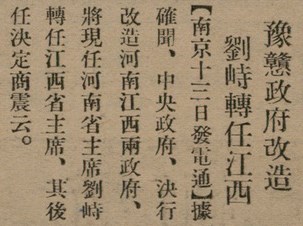 豫戇政府改造
劉峙轉任江西
【南京十三日發電通】據
確聞、中央政府、決行
改造河南江西兩政府、
將現任河南省主席劉峙
轉任江西省主席、其後
任決定商震云。